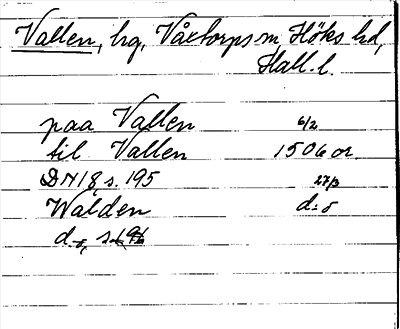 Vallen, hg, Våxtorps sn Höks hd,
Hall. l.
paa Vallen 6/2
til Vallen 1506 or.
DN 18, s. 195 27/3
Walden d:o
d:o, s.